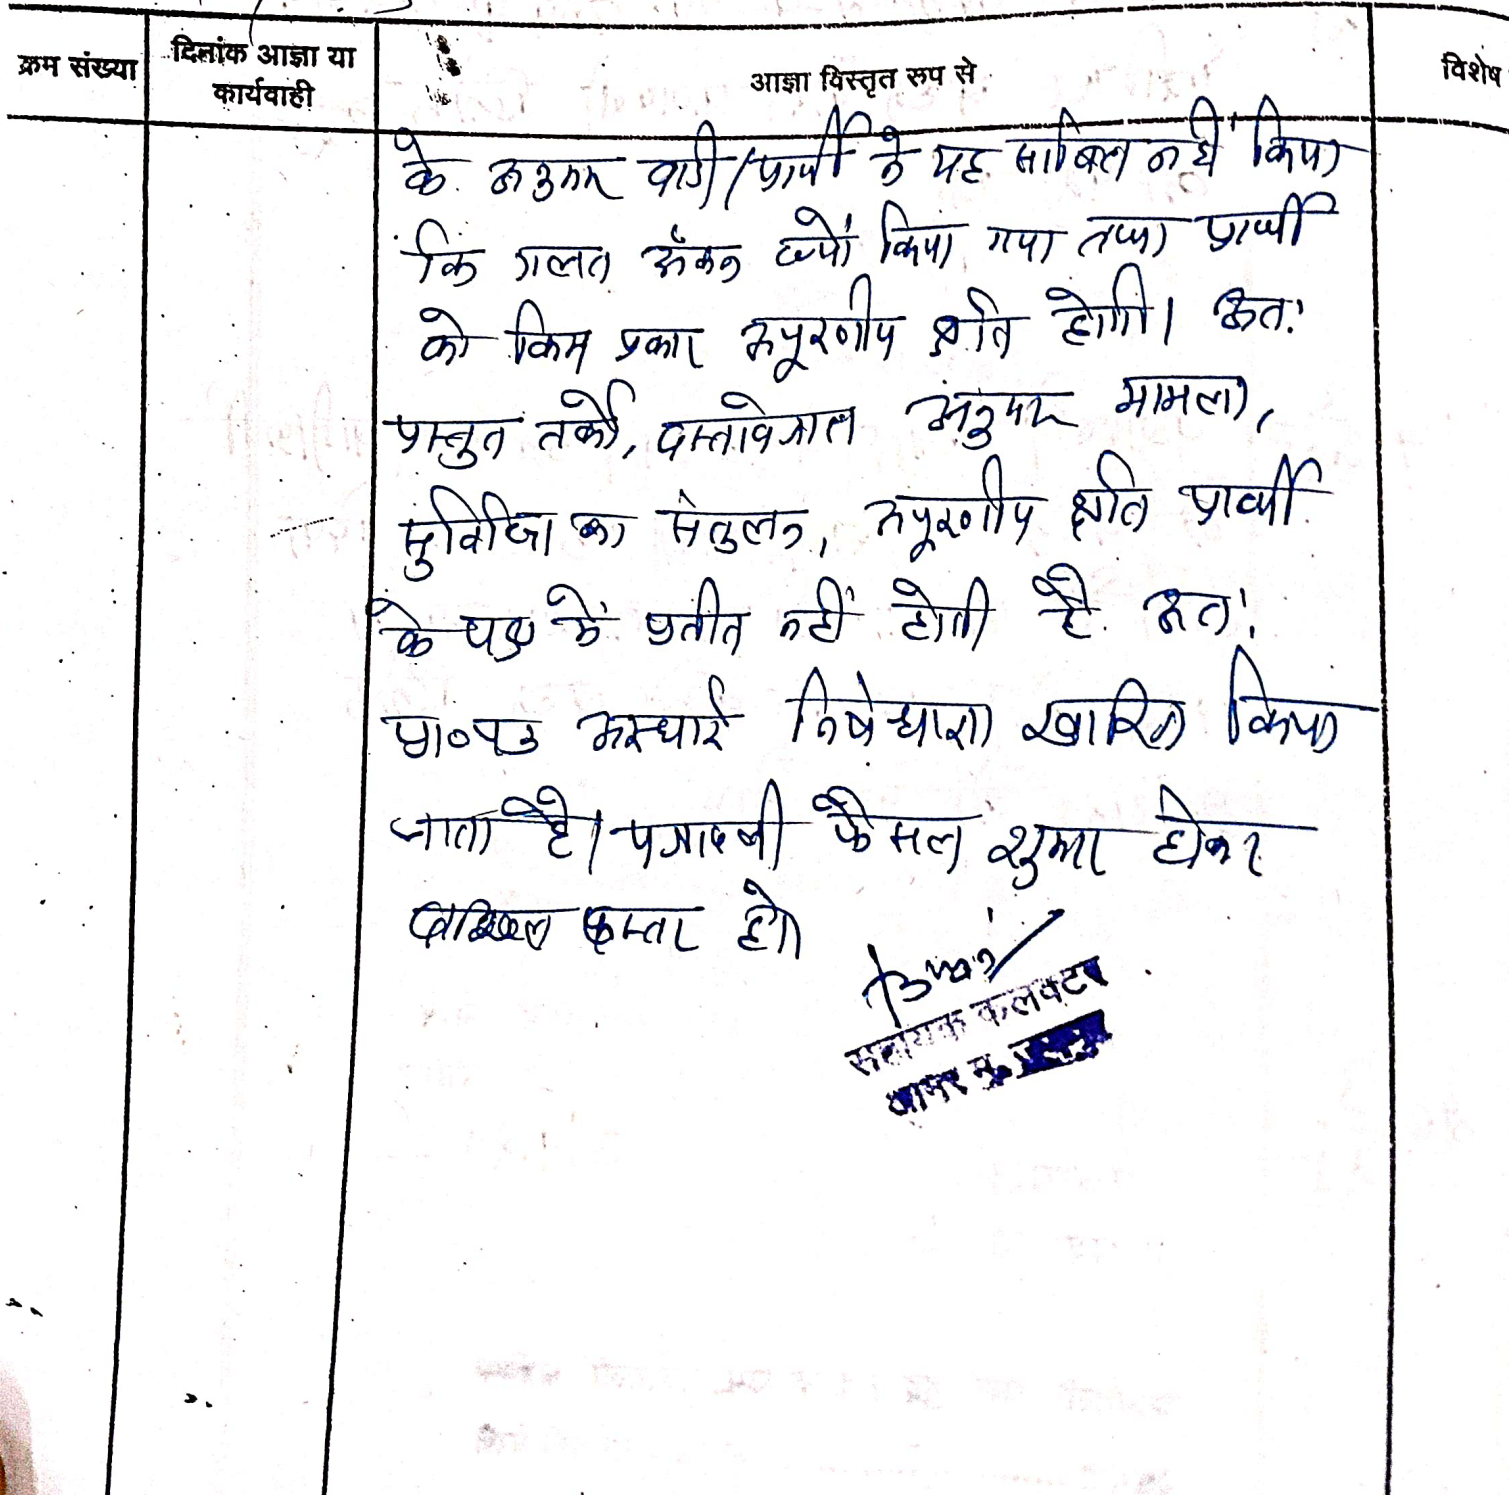 क्रम संख्या
दिनांक आज्ञा या
कार्यवाही
आज्ञा विस्तृत रूप से
विशेष
के अनुसार वादी/प्रार्थी ने यह साबित नहीं किया
कि गलत अंकन क्यों किया गया तथा प्रार्थी
को किस प्रकार अपूरणीय क्षति होगी। अतः
प्रस्तुत तर्को, दस्तावेजात अनुसार मामला,
सुविधा का संतुलन, अपूरणीय क्षति प्रार्थी
के पक्ष में प्रतीत नहीं होती है अतः
प्रा०पत्र अस्थाई निषेधाज्ञा खारिज किया
जाता है। पत्रावली फैसल शुमार होकर
दाखिल दफ्तर हो।
सहायक कलक्टर